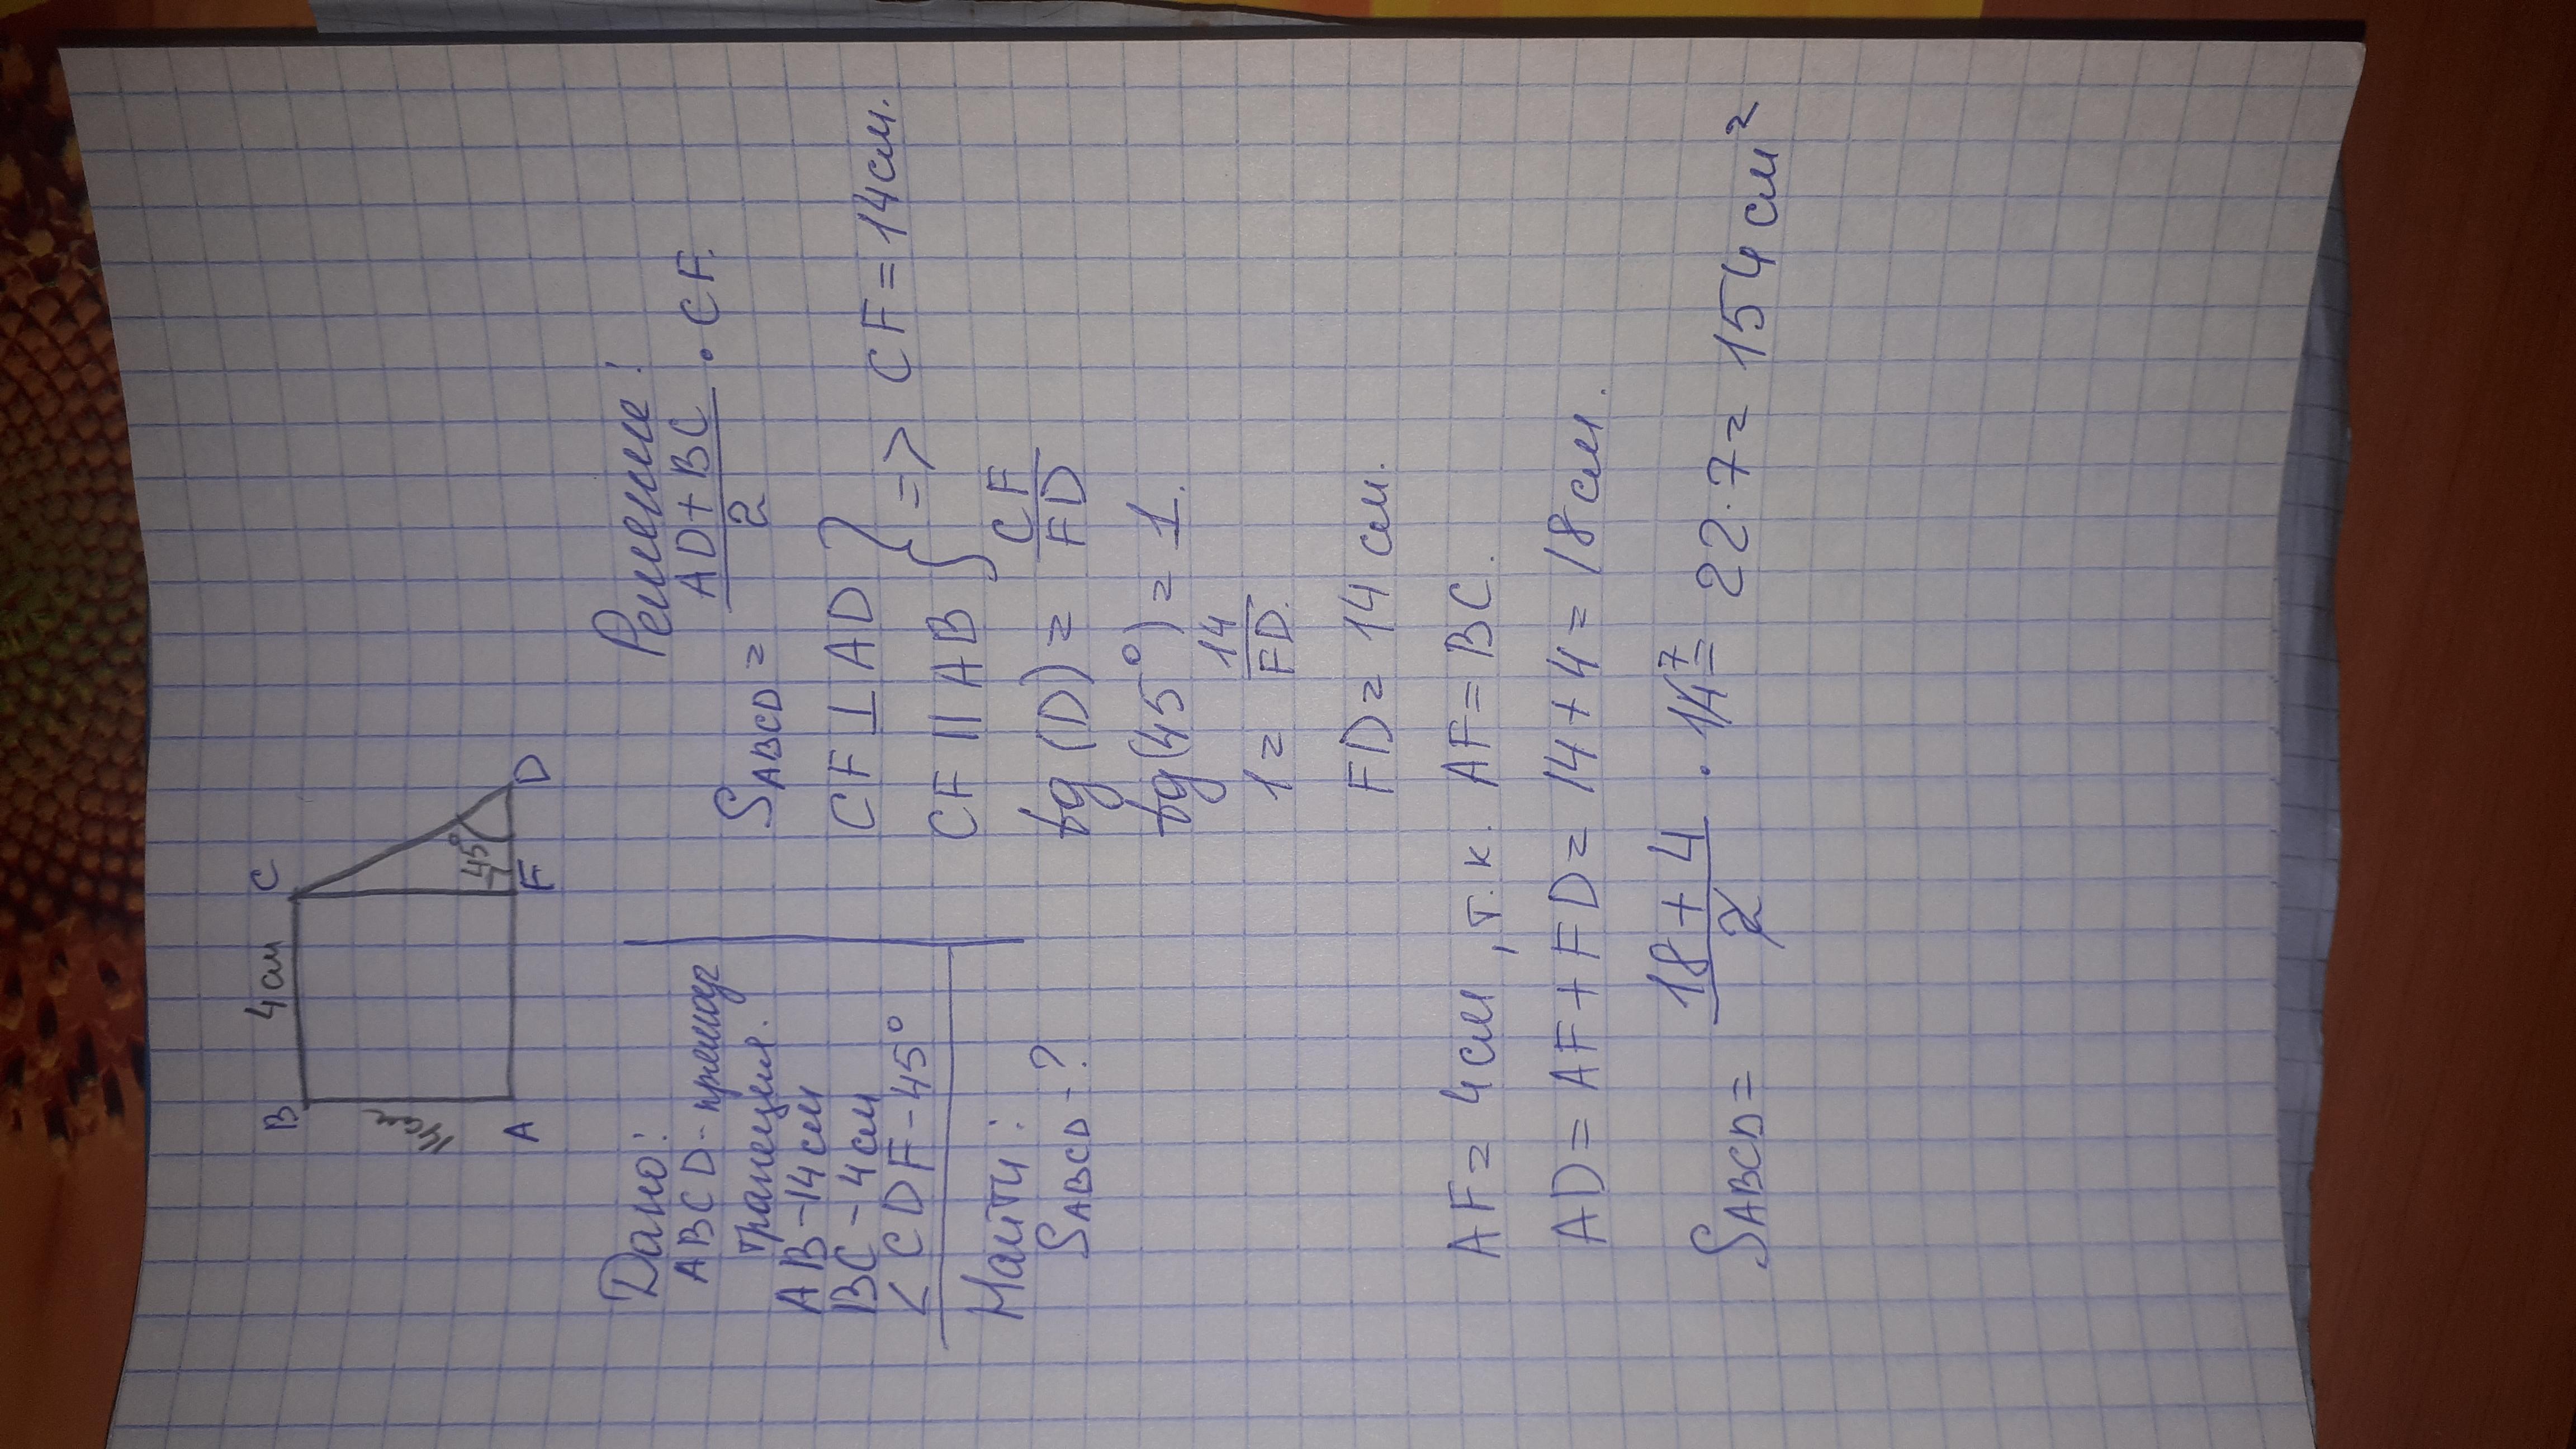 B 4см C
14см
45°
A F D
Дано:
ABCD - прямоуг
трапеция.
AB - 14см
BC - 4см
< CDF - 45°
Найти:
SABCD - ?
Решение:
SABCD = (AD + BC)/2 · CF.
CF ⊥ AD
CF || AB } => CF = 14см.
tg (D) = CF/FD
tg (45°) = 1.
1 = 14/FD.
FD = 14 см.
AF = 4см, т.к. AF = BC.
AD = AF + FD = 14 + 4 = 18см.
SABCD = (18 + 4)/2 · 14 7 = 22 · 7 = 154см²